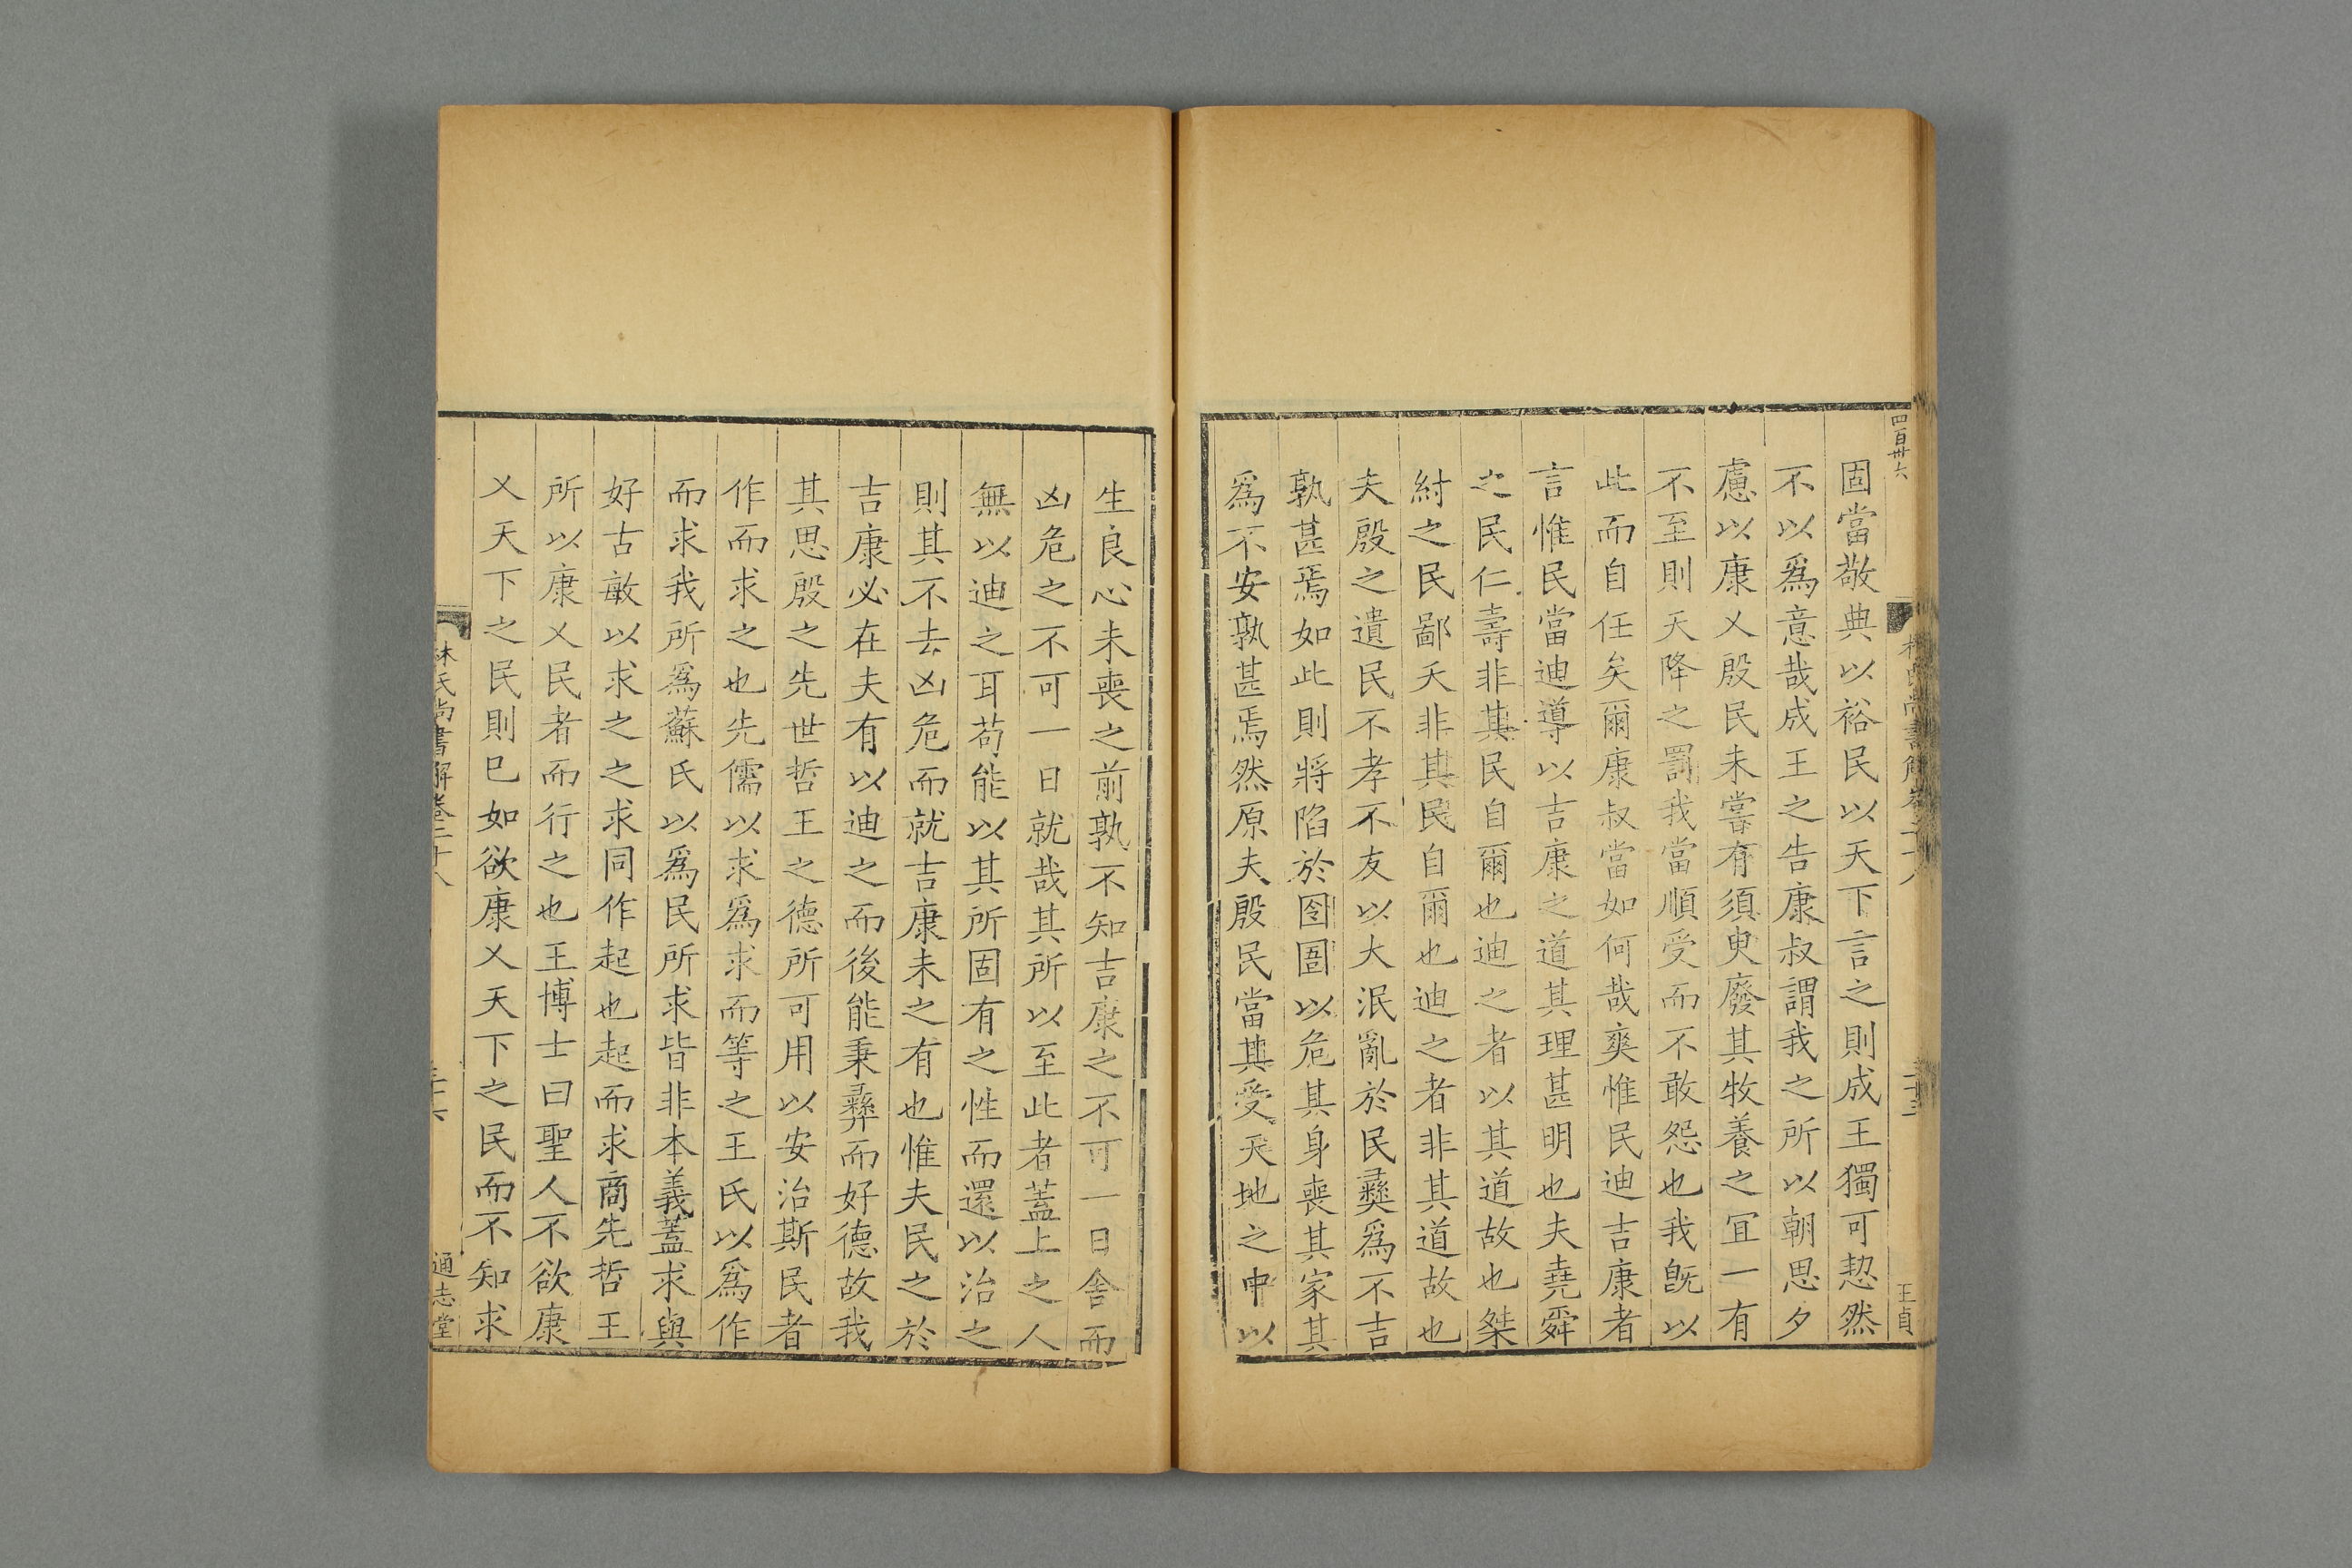 四百卅六
林氏尚書解卷二十八
王貞
固當敬典以裕民以天下言之則成王獨可恝然
不以爲意哉成王之告康叔謂我之所以朝思夕
慮以康乂殷民未嘗有須臾廢其牧養之冝一有
不至則天降之罰我當順受而不敢怨也我旣以
此而自任矣爾康叔當如何哉爽惟民迪吉康者
言惟民當迪導以吉康之道其理甚明也夫堯舜
之民仁壽非其民自爾也迪之者以其道故也桀
紂之民鄙夭非其民自爾也迪之者非其道故也
夫殷之遺民不孝不友以大泯亂於民彛爲不吉
孰甚焉如此則將陷於囹圄以危其身喪其家其
爲不安孰甚焉然原夫殷民當其受天地之中以
生良心未喪之前孰不知吉康之不可一日舍而
凶危之不可一日就哉其所以至此者蓋上之人
無以迪之耳苟能以其所固有之性而還以治之
則其不去凶危而就吉康未之有也惟夫民之於
吉康必在夫有以迪之而後能秉彛而好德故我
其思殷之先世哲王之德所可用以安治斯民者
作而求之也先儒以求爲求而等之王氏以爲作
而求我所爲蘇氏以爲民所求皆非本義蓋求與
好古敏以求之之求同作起也起而求商先哲王
所以康乂民者而行之也王博士曰聖人不欲康
乂天下之民則已如欲康乂天下之民而不知求
林氏尚書解卷二十八
通志堂